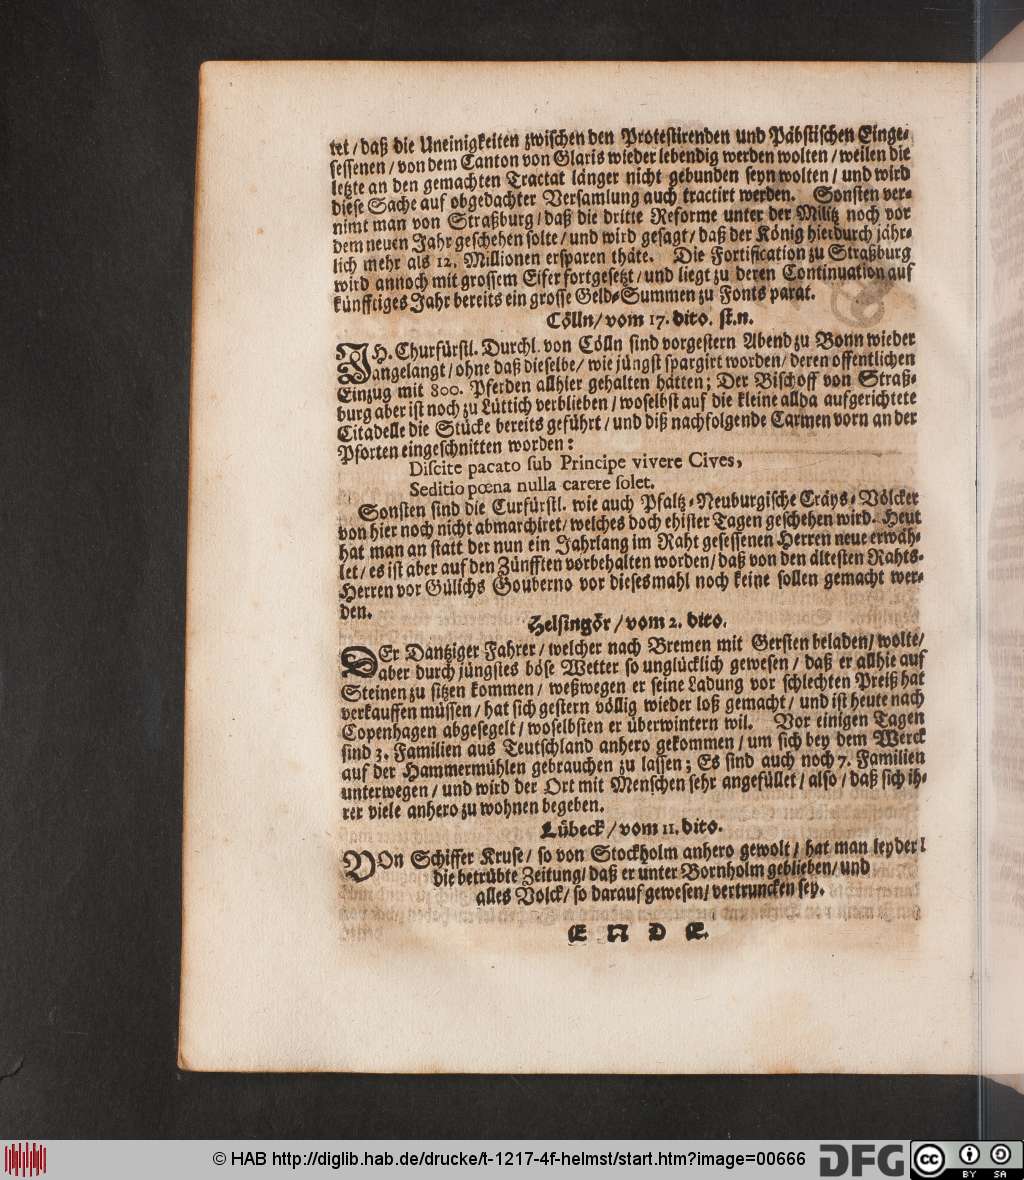 tet / daß die Uneinigkeiten zwischen den Protestirenden und Päbstischen Einge-
sessenen / von dem Canton von Glaris wieder lebendig werden wolten / weilen die
letzte an den gemachten Tractat länger nicht gebunden seyn wolten / und wird
diese Sache auf obgedachter Versamlung auch tractirt werden. Sonsten ver-
nimt man von Straßburg / daß die dritte Reforme unter der Militz noch vor
dem neuen Jahr geschehen solte / und wird gesagt / daß der König hierdurch jähr-
lich mehr als 12. Millionen ersparen thäte. Die Fortification zu Straßburg
wird annoch mit grossem Eifer fortgesetzt / und liegt zu deren Continuation auf
künfftiges Jahr bereits ein grosse Geld-Summen zu Fonts parat.
Cölln / vom 17. dito. st.n.
IH. Churfürstl. Durchl. von Cölln sind vorgestern Abend zu Bonn wieder
angelangt / ohne daß dieselbe / wie jüngst spargirt worden / deren offentlichen
Einzug mit 800. Pferden allhier gehalten hätten; Der Bischoff von Straß-
burg aber ist noch zu Lüttich verblieben / woselbst auf die kleine allda aufgerichtete
Citadelle die Stücke bereits geführt / und diß nachfolgende Carmen vorn an der
Pforten eingeschnitten worden:
Discite pacato sub Principe vivere Cives,
Seditio pœna nulla carere solet.
Sonsten sind die Curfürstl. wie auch Pfaltz-Neuburgische Cräys-Völcker
von hier noch nicht abmarchiret / welches doch ehister Tagen geschehen wird. Heut
hat man an statt der nun ein Jahrlang im Raht gesessenen Herren neue erwäh-
let / es ist aber auf den Zünfften vorbehalten worden / daß von den ältesten Rahts-
Herren vor Gülichs Gouberno vor diesesmahl noch keine sollen gemacht wer-
den.
Helsingör / vom 2. dito.
DEr Dantziger Fahrer / welcher nach Bremen mit Gersten beladen / wolte /
aber durch jüngstes böse Wetter so unglücklich gewesen / daß er allhie auf
Steinen zu sitzen kommen / weßwegen er seine Ladung vor schlechten Preiß hat
verkauffen müssen / hat sich gestern völlig wieder loß gemacht / und ist heute nach
Copenhagen abgesegelt / woselbsten er überwintern wil. Vor einigen Tagen
sind 3. Familien aus Teutschland anhero gekommen / um sich bey dem Werck
auf der Hammermühlen gebrauchen zu lassen; Es sind auch noch 7. Familien
unterwegen / und wird der Ort mit Menschen sehr angefüllet / also / daß sich ih-
rer viele anhero zu wohnen begeben.
Lübeck / vom 11. dito.
VOn Schiffer Kruse / so von Stockholm anhero gewolt / hat man leyder!
die betrübte Zeitung / daß er unter Bornholm geblieben / und
alles Volck / so darauf gewesen / vertruncken sey.
ENDE.
© HAB http://diglib.hab.de/drucke/t-1217-4f-helmst/start.htm?image=00666
DFG
cc BY SA